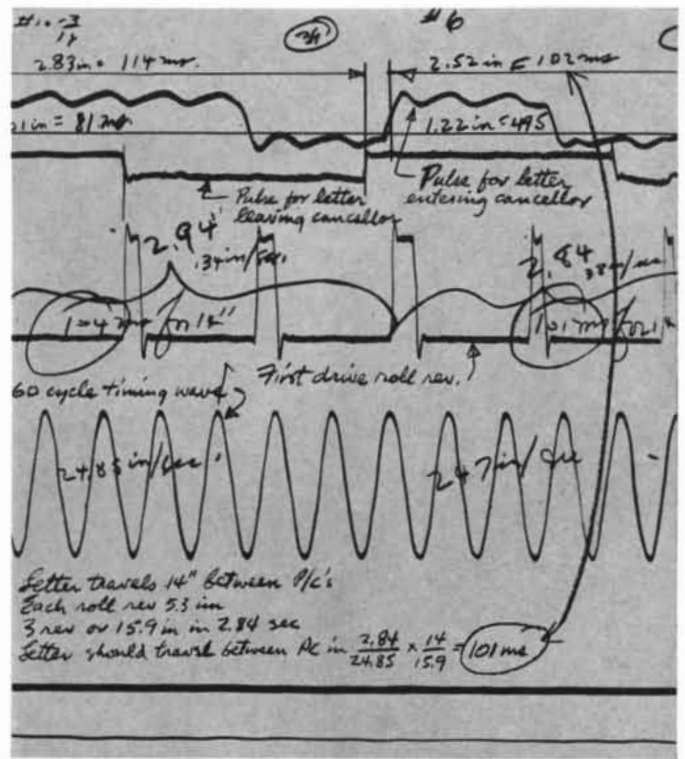 #6
2.83in = 114 ms.
2.52 in = 102 ms
in = 81 ms
1.22 in = 495
Pulse for letter
leaving cancellor
Pulse for letter
entering cancellor
2.94
.34in/sec.
2.84
104 ms for 14"
101 ms for
60 cycle timing wave
First drive roll rev.
24.85 in/sec
24.7 in/sec
Letter travels 14" between P/c's
Each roll rev 5.3 in
3 rev or 15.9 in in 2.84 sec
Letter should travel between PC in 2.84/24.85 x 14/15.9 = 101 ms